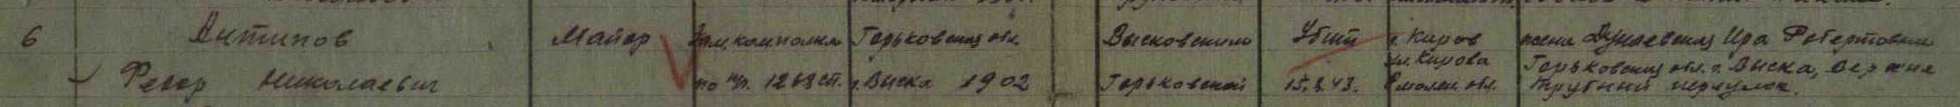 6 Антипов Майор Зам. комполка Горьковская обл. Высковским Убит г. Киров жена Дунаевская Ира Робертовна
ул. Кирова
Федор Николаевич по п/ч. 1268 сп. г. Выкса 1902 Горьковской 15.8.43. Смолен. обл. Горьковская обл. г. Выкса, Верхне
Трубный переулок.